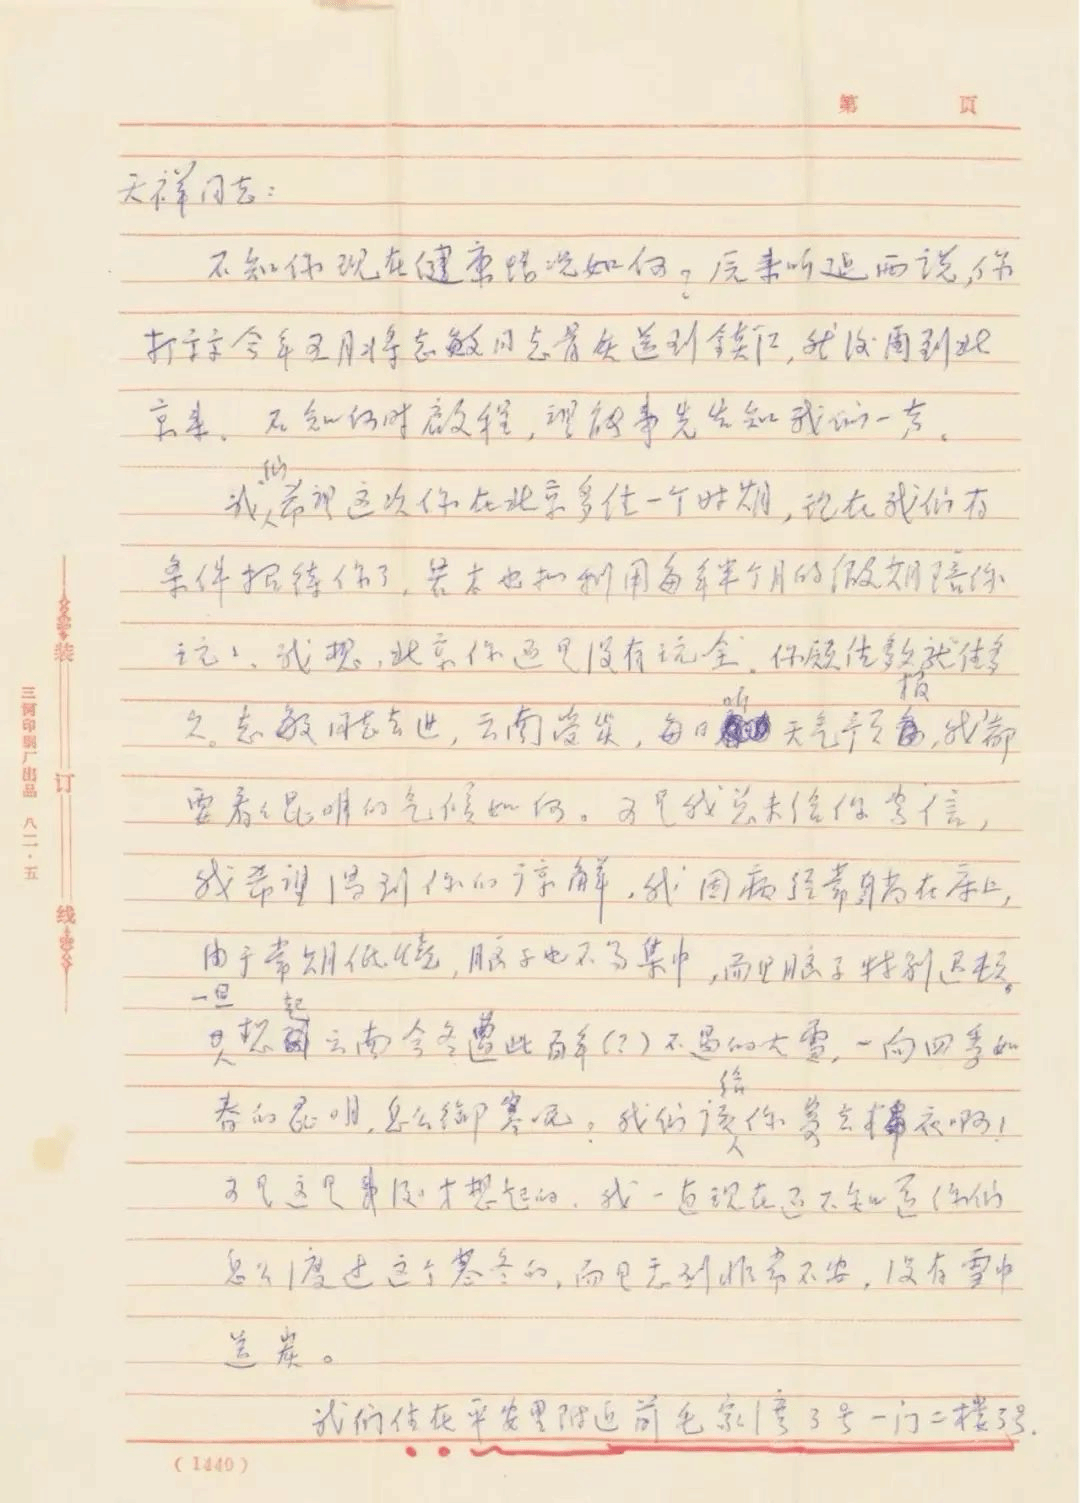 第 页
天祥同志：
不知你现在健康情况如何？后来听延西说，你
打算今年五月将志敏同志骨灰送到镇江，然后团到北
京来。不知何时启程，望能事先告知我们一声。
我们希望这次你在北京多住一个时期，现在我们有
条件招待你了，若木也拟利用每年半个月的假期陪你
玩玩。我想，北京你还是没有玩全。你愿住多久就住多
久。志敏同志去世，云南受灾，每日听天气预报，我都
要看看昆明的气候如何。可是我总未给你写信，
我希望得到你的谅解。我因病经常躺在床上，
由于常期低烧，脑子也不易集中，而且脑子特别迟顿。
一旦想起云南今冬遭此百年(？)不遇的大雪，一向四季如
春的昆明，怎么御寒呢？我们该给你寄去棉衣啊！
可是这是事后才想起的。我一直现在还不知道你们
怎么度过这个寒冬的，而且感到非常不安，没有雪中
送炭。
我们住在平安里附近前毛家湾3号一门二楼3号.
装
订
线
三河印刷厂出品 八二·五
(1440)